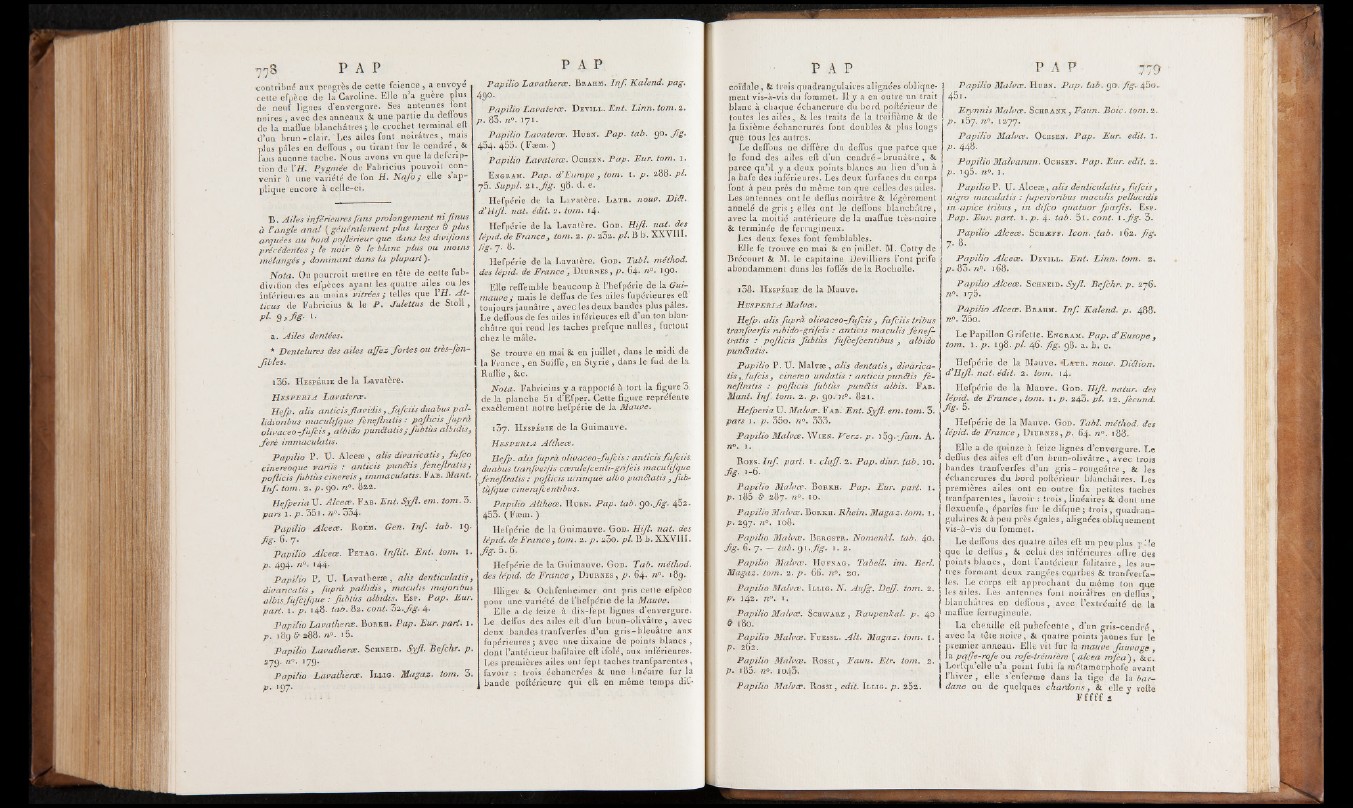 778 P A P
contribué aux progrès de cette science, a envoyé
cette espèce de la Caroline. Elle n'a guère plus
de neuf lignes d'envergure. Ses antennes sont
noires, avec des anneaux & une partie du dessous
de la massue blanchâtres; le crochet terminal est
d'un brun-clair. Les ailes sont noirâtres, mais
plus pâles en dessous, ou tirant sur le cendré, &
sans aucune tache. Nous avons vu que la descrip-
tion de l'H. Pygmée de Fabricius pouvoit con-
venir à une variété de son H. Naso; elle s'ap-
plique encore à celle-ci.
B. Ailes inférieures sans prolongement ni sinus
à l'angle anal (généralement plus larges & plus
arquées au bord postérieur que dans les divisions
précédentes; le noir & le blanc plus ou moins
mélangés, dominant dans la plupart).
Nota. On pourroit mettre en tête de cette sub-
division des espèces ayant les quatre ailes ou les
inférieures au moins vitrées; telles que l'H. At-
ticus de Fabricius & le P. Julettus de Stoll,
pl. 9, fig. 1.
2. Ailes dentées.
* Dentelures des ailes assez fortes ou très-sen-
sibles.
136. HESPÉRIE de la Lavatère.
HESPERIA Lavateræ.
Hesp. alis anticis flavidis, fasciis duabus pal-
lidioribus maculisque fenestratis : posticis suprà
olivaceo-fuscis, albido punctatis; subtùs albidis,
ferè immaculatis.
Papilio P. U. Alceæ, alis divaricatis, fusco
cinereoque variis : anticis punctis fenestratis;
posticis subtùs cinereis, immaculatis. FAB. Mant.
Inf. tom. 2. p. 90. n°. 822.
Hesperia U. Alceæ. FAB. Ent. Syst. em. tom. 3.
pars 1. p. 351. n°. 334.
Papilio Alceæ. ROEM. Gen. Inf. tab. 19.
fig. 6. 7.
Papilio Alceæ. PETAG. Instit. Ent. tom. 1.
p. 494. n°. 144.
Papilio P. U. Lavatheræ, alis denticulatis,
divaricatis, suprà pallidis, maculis majoribus
albis fuscisque : subtùs albidis. ESP. Pap. Eur.
part. 1. p. 148. tab. 82. cont. 32. fig. 4.
Papilio Lavatheræ. BORKH. Pap. Eur. part. 1.
p. 189 & 288. n°. 15.
Papilio Lavatheræ. SCHNEID. Syst. Beschr. p.
279. n°. 179.
Papilio Lavatheræ. ILLIG. Magaz. tom. 3.
p. 197.
P A P
Papilio Lavatheræ. BRAHM. Inf. Kalend. pag.
490.
Papilio Lavateræ. DEVILL. Ent. Linn. tom. 2.
p. 83. n°. 171.
Papilio Lavateræ. HUBN. Pap. tab. 90. fig.
454. 455. (Fœm.)
Papilio Lavateræ. OCHSEN. Pap. Eur. tom. 1.
ENGRAM. Pap. d'Europe, tom. 1. p. 288. pl.
75. Suppl. 21. fig. 98. d. e.
Hespérie de la Lavatère. LATR. nouv. Dict.
d'Hist. nat. édit. 2. tom. 14.
Hespérie de la Lavatère. GOD. Hist. nat. des
lépid. de France, tom. 2. p. 232. pl. B b. XXVIII.
fig. 7. 8.
Hespérie de la Lavatère. GOD. Tabl. méthod.
des lépid. de France, DIURNES, p. 64. n°. 190.
Elle ressemble beaucoup à l'hespérie de la Gui-
mauve; mais le dessus de ses ailes supérieures est
toujours jaunâtre, avec les deux bandes plus pâles.
Le dessous de ses ailes inférieures est d'un ton blan-
châtre qui rend les taches presque nulles, surtout
chez le mâle.
Se trouve en mai & en juillet, dans le midi de
la France, en Suisse, en Styrie, dans le sud de la
Russie, &c.
Nota. Fabricius y a rapporté à tort la figure 3
de la planche 51 d'Esper. Cette figure représente
exactement notre hespérie de la Mauve.
137. HESPÉRIE de la Guimauve.
HESPERIA Altheæ.
Hesp. alis suprà olivaceo-fuscis : anticis fasciis
duabus transversis cærulescenti-griseis maculisque
fenestratis : posticis utrinque albo punctatis, sub-
tùsque cinerascentibus.
Papilio Altheæ. HUBN. Pap. tab. 90. fig. 452.
453. (Fœm.)
Hespérie de la Guimauve. GOD. Hist. nat. des
lépid. de France, tom. 2. p. 230. pl. B b. XXVIII.
fig. 5. 6.
Hespérie de la Guimauve. GOD. Tab. méthod.
des lépid. de France, DIURNES, p. 64. n°. 189.
Illiger & Ochsenheimer ont pris cette espèce
pour une variété de l'hespérie de la Mauve.
Elle a de seize à dix-sept lignes d'envergure.
Le dessus des ailes est d'un brun-olivâtre, avec
deux bandes transverses d'un gris-bleuâtre aux
supérieures; avec une dixaine de points blancs,
dont l'antérieur basilaire est isolé, aux inférieures.
Les premières ailes ont sept taches transparentes,
savoir : trois échancrées & une linéaire sur la
bande postérieure qui est en même temps dis-
P A P
coïdale, & trois quadrangulaires alignées oblique-
ment vis-à-vis du sommet. Il y a en outre un trait
blanc à chaque échancrure du bord postérieur de
toutes les ailes, & les traits de la troisième & de
la sixième échancrures sont doubles & plus longs
que tous les autres.
Le dessous ne diffère du dessus que parce que
le fond des ailes est d'un cendré-brunâtre, &
parce qu'il y a deux points blancs au lieu d'un à
la base des inférieures. Les deux surfaces du corps
sont à peu près du même ton que celles des ailes.
Les antennes ont le dessus noirâtre & légèrement
annelé de gris; elles ont le dessous blanchâtre,
avec la moitié antérieure de la massue très-noire
& terminée de ferrugineux.
Les deux sexes sont semblables.
Elle se trouve en mai & en juillet. M. Cotty de
Brécourt & M. le capitaine Devilliers l'ont prise
abondamment dans les fossés de la Rochelle.
138. HESPÉRIE de la Mauve.
HESPERIA Malvæ.
Hesp. alis suprà olivaceo-fuscis, fasciis tribus
transversis rubido-griseis : anticis maculis fenes-
tratis : posticis subtùs fuscescentibus, albido
punctatis.
Papilio P. U. Malvæ, alis dentatis, divarica-
tis, fuscis, cinereo undatis : anticis punctis fe-
nestratis : posticis subtùs punctis albis. FAB.
Mant. Inf. tom. 2. p. 90. n°. 821.
Hesperia U. Malvæ. FAB. Ent. Syst. em. tom. 3.
pars 1. p. 350. n°. 333.
Papilio Malvæ. WIEN. Verz. p. 159. fam. A.
n°. 1.
ROES. Inf. part. 1. class. 2. Pap. diur. tab. 10.
fig. 1-6.
Papilio Malvæ. BORKH. Pap. Eur. part. 1.
p. 185 & 287. n°. 10.
Papilio Malvæ. BORKH. Rhein. Magaz. tom. 1.
p. 297. n°. 108.
Papilio Malvæ. BERGSTR. Nomenkl. tab. 40.
fig. 6. 7. — tab. 91. fig. 1. 2.
Papilio Malvæ. HUFNAG. Tabell. im. Berl.
Magaz. tom. 2. p. 66. n°. 20.
Papilio Malvæ. ILLIG. N. Ausg. Dess. tom. 2.
p. 142. n°. 1.
Papilio Malvæ. SCHWARZ, Raupenkal. p. 40
& 180.
Papilio Malvæ. FUESSL. Alt. Magaz. tom. 1.
p. 262.
Papilio Malvæ. ROSSI, Faun. Etr. tom. 2.
p. 185. n°. 1043.
Papilio Malvæ. ROSSI, edit. ILLIG. p. 252.
P A P 779
Papilio Malvæ. HUBN. Pap. tab. 90. fig. 450.
451.
Erynnis Malvæ. SCHRANK, Faun. Boic. tom. 2.
p. 157. n°. 1277.
Papilio Malvæ. OCHSEN. Pap. Eur. edit. 1.
p. 448.
Papilio Malvarum. OCHSEN. Pap. Eur. edit. 2.
p. 195. n°. 1.
Papilio P. U. Alceæ, alis denticulatis, fuscis,
nigro maculatis : superioribus maculis pellucidis
in apice tribus, in disco quatuor sparsis. ESP.
Pap. Eur. part. 1. p. 4. tab. 51. cont. 1. fig. 3.
Papilio Alceæ. SCHÆFF. Icon. tab. 162. fig.
7. 8.
Papilio Alceæ. DEVILL. Ent. Linn. tom. 2.
p. 83. n°. 168.
Papilio Alceæ. SCHNEID. Syst. Beschr. p. 276.
n°. 175.
Papilio Alceæ. BRAHM. Inf. Kalend. p. 488.
n°. 350.
Le Papillon Grisette. ENGRAM. Pap. d'Europe,
tom. 1. p. 198. pl. 46. fig. 98. a. b. c.
Hespérie de la Mauve. LATR. nouv. Diction.
d'Hist. nat. édit. 2. tom. 14.
Hespérie de la Mauve. GOD. Hist. natur. des
lépid. de France, tom. 1. p. 243. pl. 12. secund.
fig. 3.
Hespérie de la Mauve. GOD. Tabl. méthod. des
lépid. de France, DIURNES, p. 64. n°. 188.
Elle a de quinze à seize lignes d'envergure. Le
dessus des ailes est d'un brun-olivâtre, avec trois
bandes transverses d'un gris-rougeâtre, & les
échancrures du bord postérieur blanchâtres. Les
premières ailes ont en outre six petites taches
transparentes, savoir : trois, linéaires & dont une
flexueuse, éparses sur le disque; trois, quadran-
gulaires & à peu près égales, alignées obliquement
vis-à-vis du sommet.
Le dessous des quatre ailes est un peu plus pâle
que le dessus, & celui des inférieures offre des
points blancs, dont l'antérieur solitaire, les au-
tres formant deux rangées courbes & transversa-
les. Le corps est approchant du même ton que
les ailes. Les antennes sont noirâtres en dessus,
blanchâtres en dessous, avec l'extrémité de la
massue ferrugineuse.
La chenille est pubescente, d'un gris-cendré,
avec la tête noire, & quatre points jaunes sur le
premier anneau. Elle vit sur la mauve sauvage,
la passe-rose ou rose-trémière (alcea rosea), &c.
Lorsqu'elle n'a point subi sa métamorphose avant
l'hiver, elle s'enferme dans la tige de la bar-
dane ou de quelques chardons, & elle y reste
Fffff 2